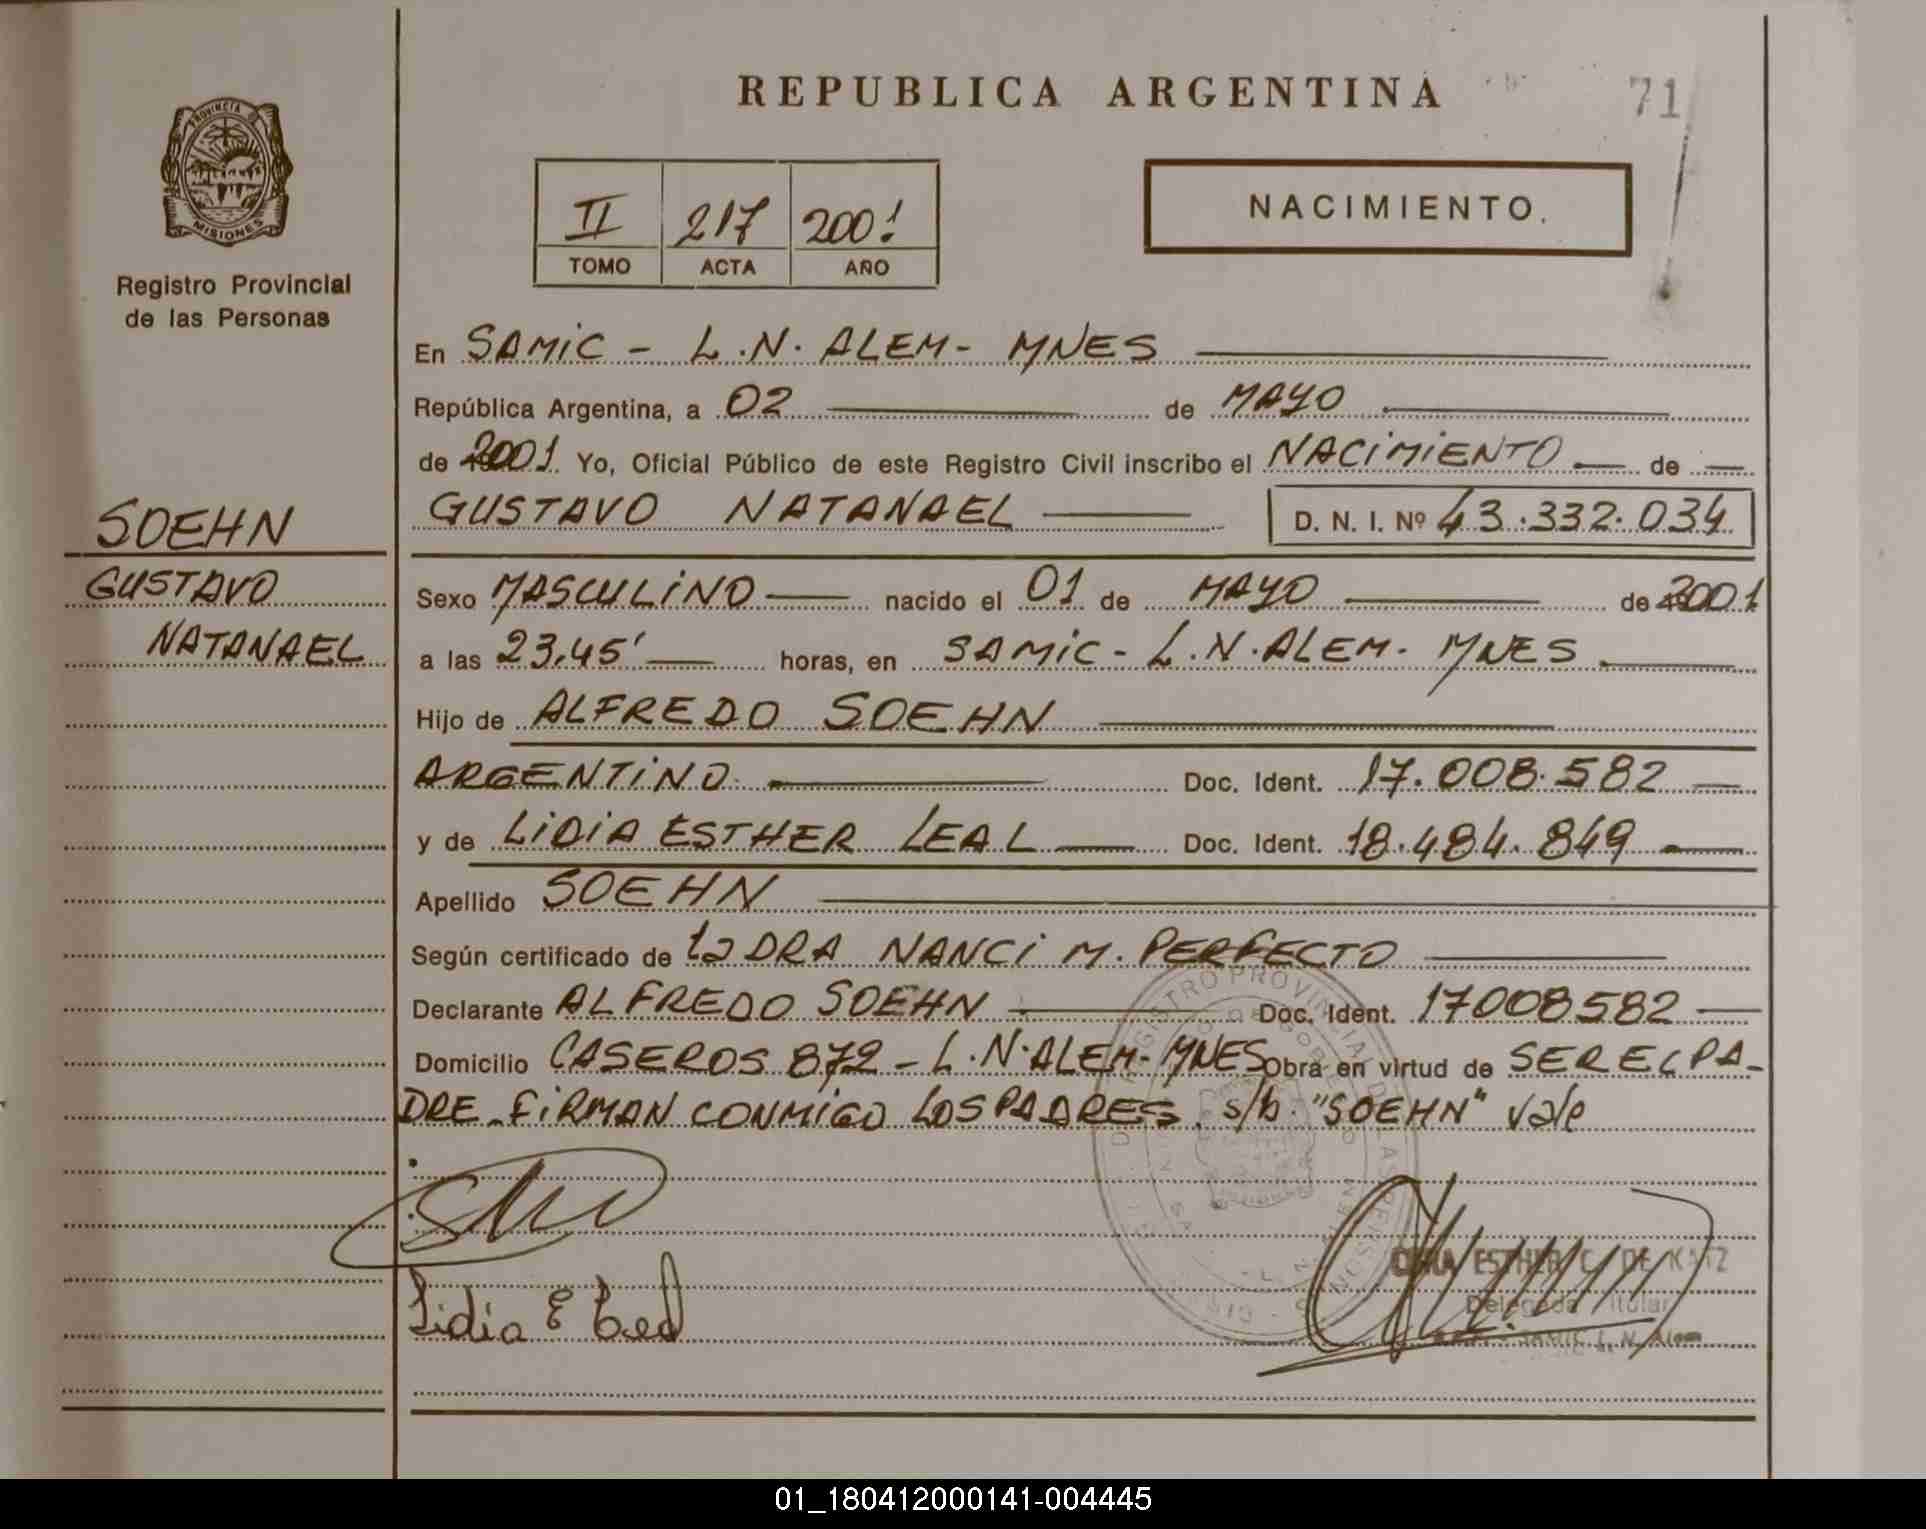 REPUBLICA ARGENTINA
71
PROVINCIA DE
MISIONES
Registro Provincial
de las Personas
II 217 2001
TOMO ACTA AÑO
NACIMIENTO.
En SAMIC - L.N. ALEM - MNES
República Argentina, a 02 de MAYO
de 2001. Yo, Oficial Público de este Registro Civil inscribo el NACIMIENTO de
GUSTAVO NATANAEL D. N. I. Nº 43.332.034
SOEHN
GUSTAVO
NATANAEL
Sexo MASCULINO nacido el 01 de MAYO de 2001
a las 23,45' horas, en SAMIC - L.N. ALEM - MNES
Hijo de ALFREDO SOEHN
ARGENTINO Doc. Ident. 17.008.582
y de LIDIA ESTHER LEAL Doc. Ident. 18.484.849
Apellido SOEHN
Según certificado de la DRA NANCI M. PERFECTO
Declarante ALFREDO SOEHN Doc. Ident. 17008582
Domicilio CASEROS 872 - L.N. ALEM - MNES Obra en virtud de SER EL PA-
DRE. FIRMAN CONMIGO LOS PADRES. s/b. "SOEHN" vale
REGISTRO PROVINCIAL DE LAS PERSONAS
Lidia E Leal
ESTHER C. DE KATZ
Delegada Titular
SAMIC L. N. Alem
01_180412000141-004445